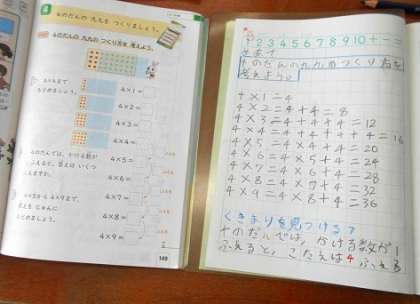 4のだんの 九九を つくりましょう。
4のだんの 九九の つくり方を 考えよう。
4×1=
4×2=
4×3=
4×4=
4のだんでは、かける数が
4×5=
4×6=
4×7=
4×8=
4×9=
149
1 2 3 4 5 6 7 8 9 10 + - =
4のだんの九九のつくり方を
考えよう。
4×1=4
4×2=4+4=8
4×3=4+4+4=12
4×4=4+4+4+4=16
4×5=4×4+4=20
4×6=4×5+4=24
4×7=4×6+4=28
4×8=4×7+4=32
4×9=4×8+4=36
くきまりを見つける?
4のだんでは、かける数が1
ふえると、こたえは4ふえる